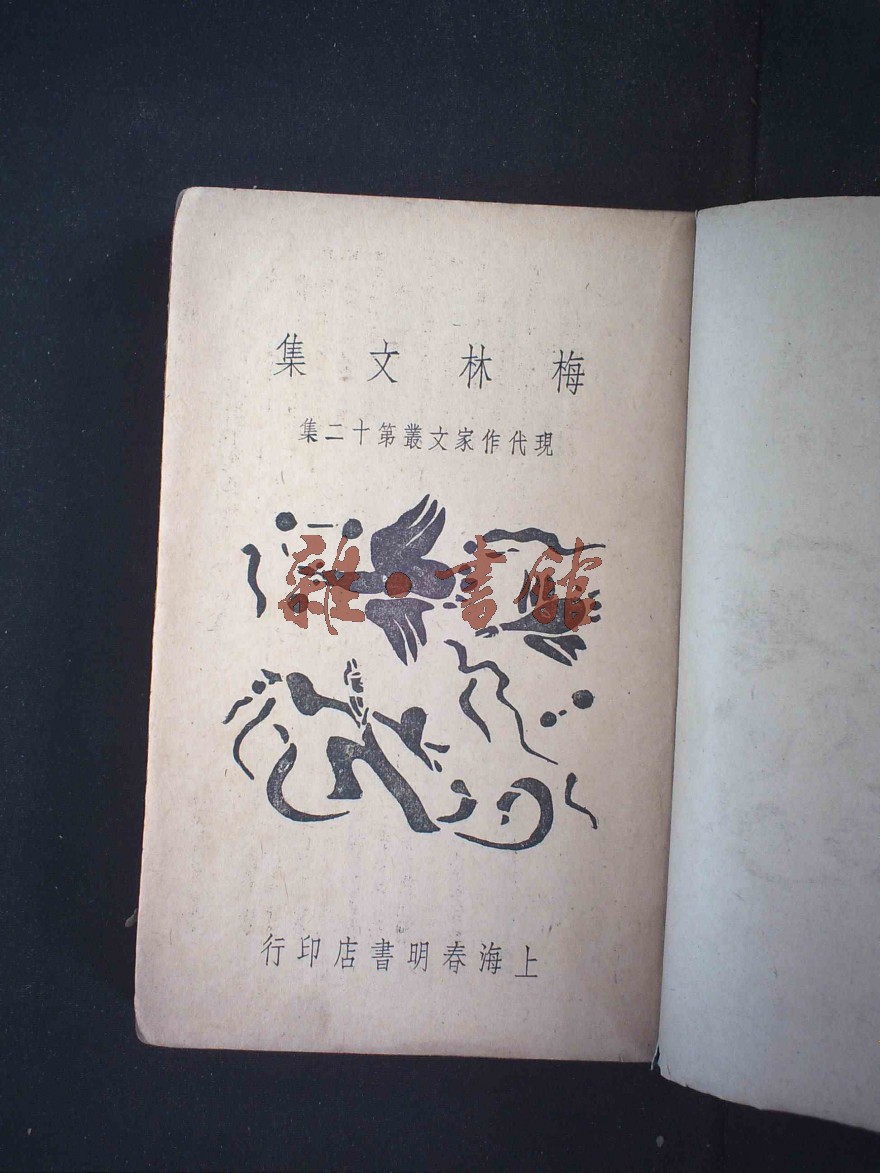 梅林文集
現代作家文叢第十二集
雜·書館
上海春明書店印行